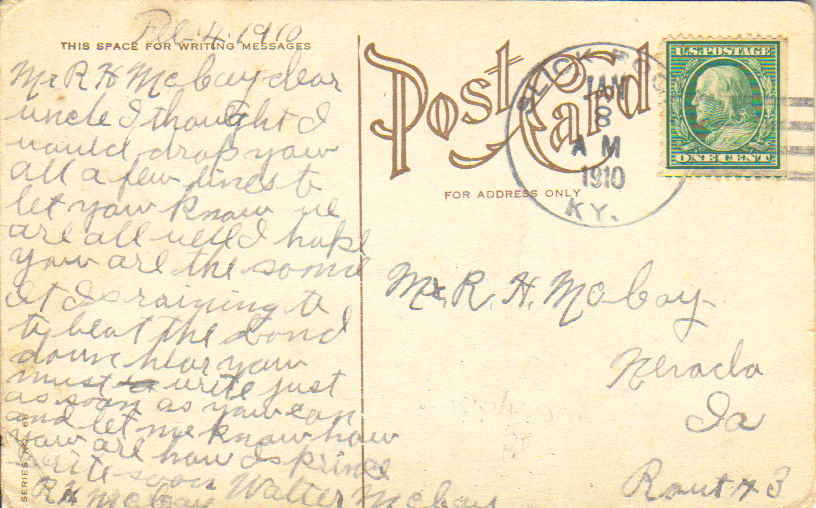 Feb 4, 1910
THIS SPACE FOR WRITING MESSAGES
Mr R H McCay dear
uncle I thought I
would drop yaw
all a few lines to
let yaw know we
are all well I hope
yaw are the some
it Is raining to
ty beat the bond
down hear yaw
must write just
as soon as yaw can
and let me know how
yaw are how Is prince
write soon
R H McCay Walter McCay
SERIES NO.
Post Card
FOR ADDRESS ONLY
SLICK ROCK
JAN
8
A M
1910
KY.
U.S. POSTAGE
ONE CENT
Mr. R. H. McCay
Nevada
Ia
Rout # 3